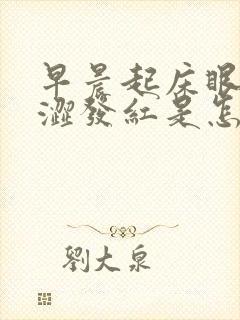 早晨起床眼
澀發紅是怎
劉大泉